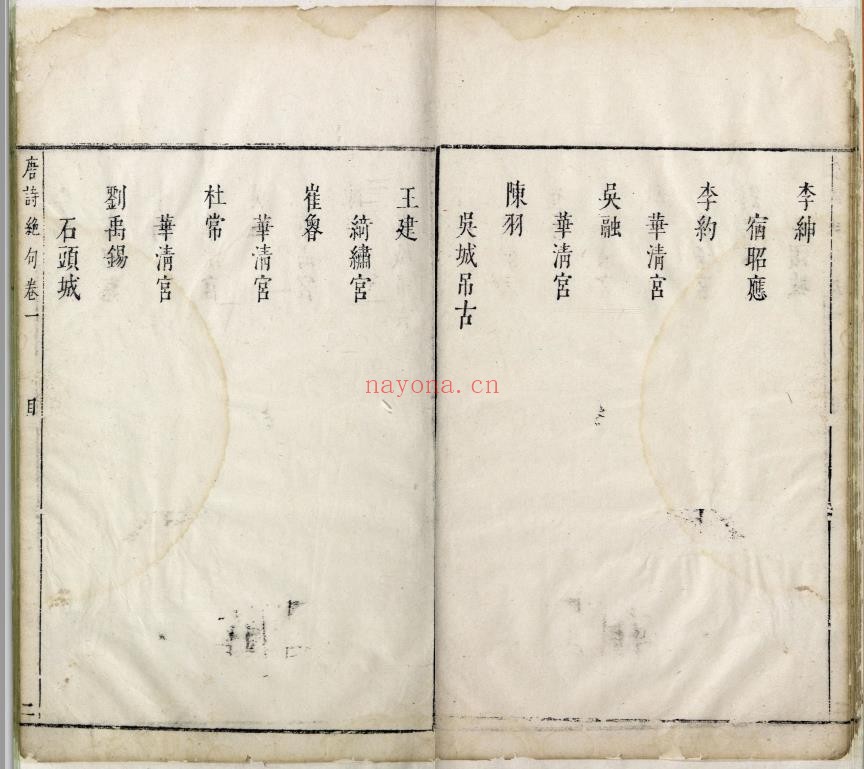 李紳
宿昭應
李約
華清宮
吳融
華清宮
陳羽
吳城吊古
王建
綺繡宮
崔魯
華清宮
杜常
華清宮
劉禹錫
石頭城
唐詩絕句卷一 目 二
nayona.cn